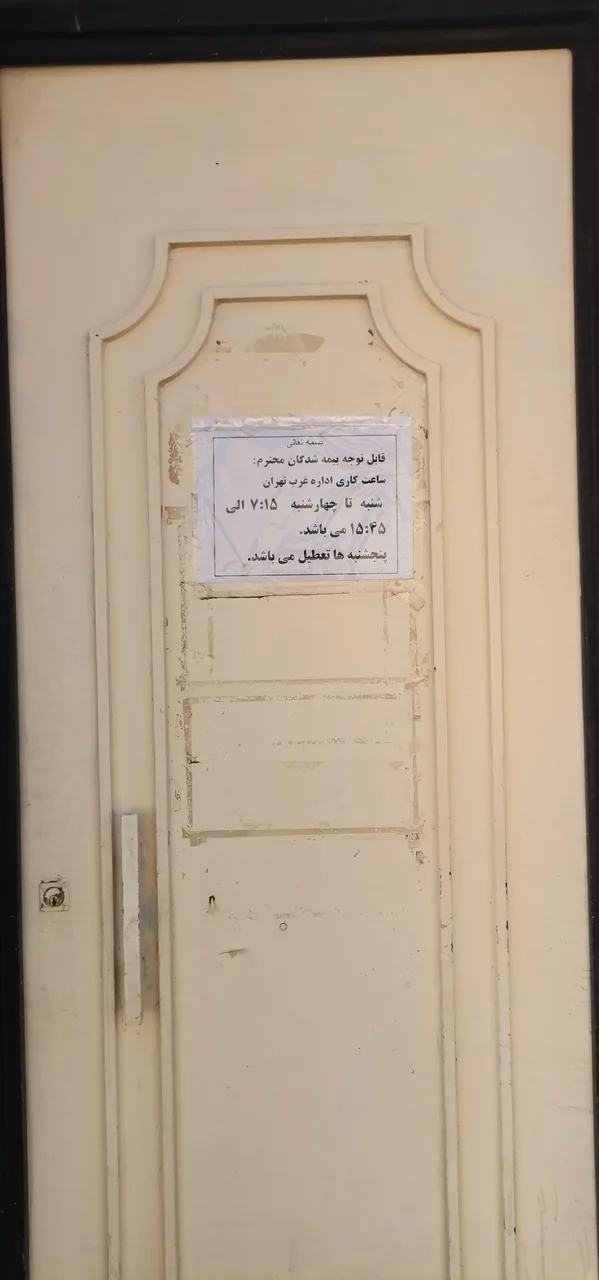 بسمه تعالی
قابل توجه بیمه شدگان محترم:
ساعت کاری اداره غرب تهران
شنبه تا چهارشنبه ۷:۱۵ الی
۱۵:۴۵ می باشد.
پنجشنبه ها تعطیل می باشد.